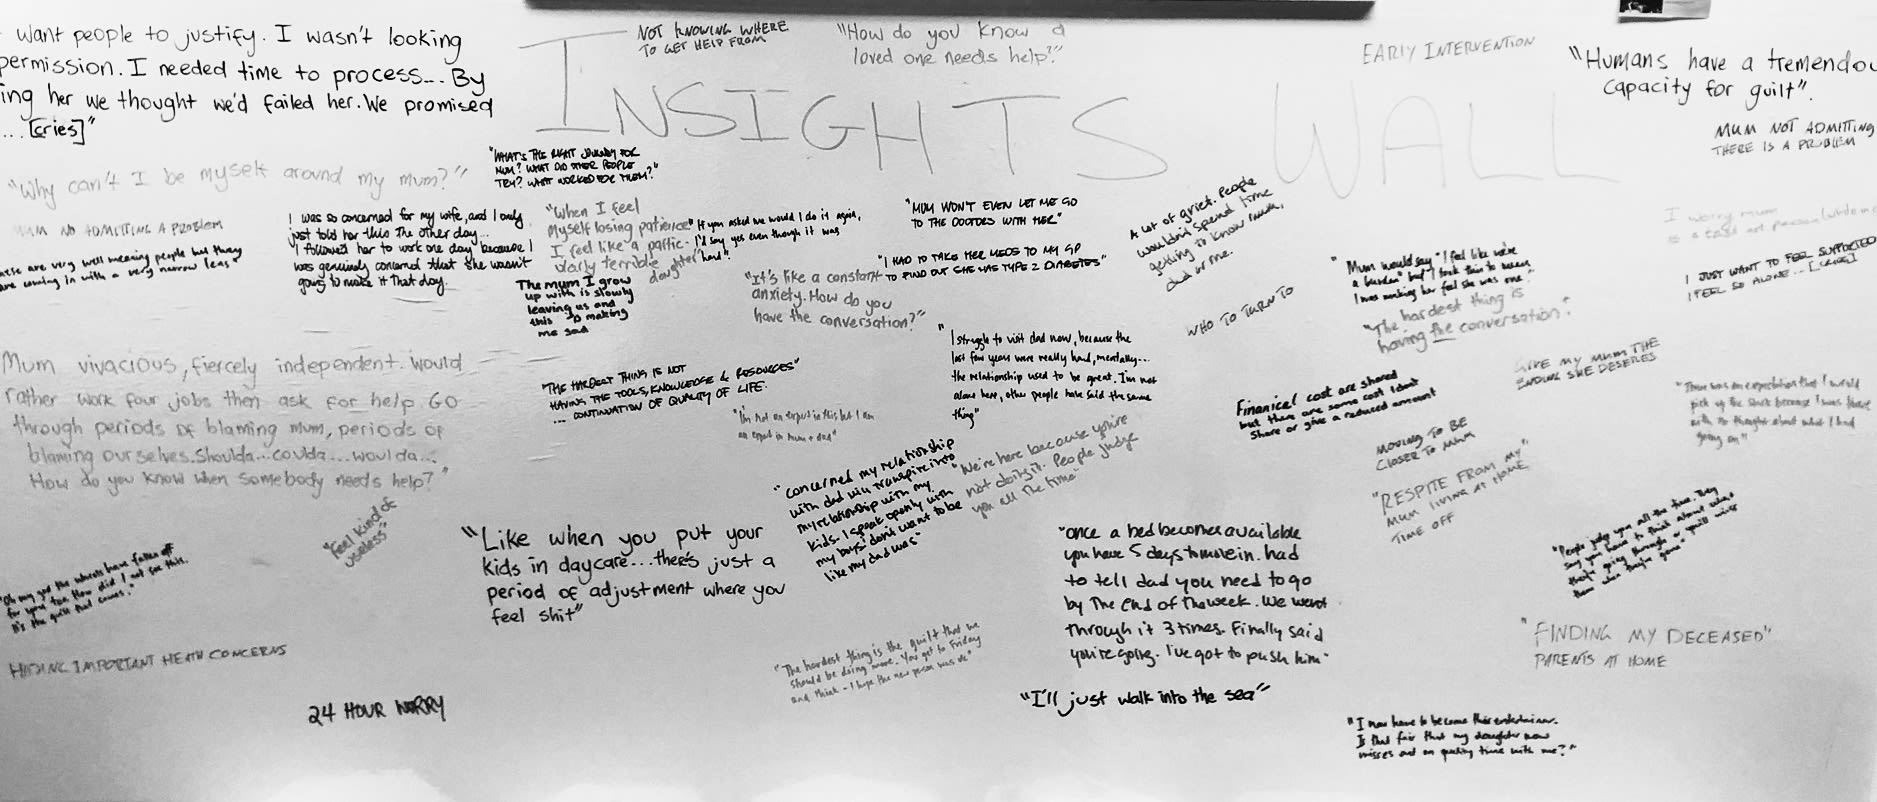 want people to justify. I wasn't looking
permission. I needed time to process... By
ing her we thought we'd failed her. We promised
... [cries]"
INSIGHTS WALL
NOT KNOWING WHERE
TO GET HELP FROM
"How do you know a
loved one needs help?"
EARLY INTERVENTION
"Humans have a tremendou
capacity for guilt".
MUM NOT ADMITTING
THERE IS A PROBLEM
"Why can't I be myself around my mum?"
"WHAT'S THE RIGHT JOURNEY FOR
MUM? WHAT DID OTHER PEOPLE
TRY? WHAT WORKED FOR THEM?"
MUM NO ADMITTING A PROBLEM
these are very well meaning people but they
are coming in with a very narrow lens"
I was so concerned for my wife, and I only
just told her this the other day...
I followed her to work one day because I
was genuinely concerned that she wasn't
going to make it that day.
"When I feel
myself losing patience
I feel like a partic-
ularly terrible
daughter"
" If you asked me would I do it again,
I'd say yes even though it was
hard".
The mum I grow
up with is slowly
leaving us and
this is making
me sad
"MUM WON'T EVEN LET ME GO
TO THE DOCTORS WITH HER"
"I HAD TO TAKE HER MEDS TO MY GP
TO FIND OUT SHE HAS TYPE 2 DIABETES"
"It's like a constant
anxiety. How do you
have the conversation?"
A lot of grief. People
wouldn't spend time
getting to know mum,
dad or me.
WHO TO TURN TO
"Mum would say "I feel like we're
a burden" but I took this to mean
I was making her feel she was one".
"The hardest thing is
having the conversation".
I worry mum
is a
I JUST WANT TO FEEL SUPPORTED
I FEEL SO ALONE... [CRIES]
Mum vivacious, fiercely independent. Would
rather work four jobs then ask for help. Go
through periods of blaming mum, periods of
blaming ourselves. Shoulda... coulda... woulda...
How do you know when somebody needs help?"
"THE HARDEST THING IS NOT
HAVING THE TOOLS, KNOWLEDGE & RESOURCES"
... CONTINUATION OF QUALITY OF LIFE.
"I'm not an expert in this but I am
an expert in mum + dad"
"I struggle to visit dad now, because the
last few years were really hard, mentally...
the relationship used to be great. I'm not
alone here, other people have said the same
thing"
Finanical cost are shared
but there are some cost I dont
share or give a reduced amount
GIVE MY MUM THE
ENDING SHE DESERVES
"There was an expectation that I would
pick up the slack because I was there
with no thought about what I had
going on"
MOVING TO BE
CLOSER TO MUM
"RESPITE FROM MY"
MUM LIVING AT HOME
TIME OFF
"concerned my relationship
with dad will transpire into
my relationship with my
kids. I speak openly with
my boys 'dont want to be
like my dad was"
"We're here because you're
not doing it. People judge
you all the time"
"feel kind of
useless"
"Like when you put your
kids in daycare...there's just a
period of adjustment where you
feel shit"
"once a bed becomes available
you have 5 days to move in. had
to tell dad you need to go
by the end of the week. We went
through it 3 times. Finally said
you're going. I've got to push him"
"People judge you all the time. They
say you have to think about what
they're going through or you'll miss
them when they're gone"
"Oh my god the wheels have fallen off
for you too. How did I not see this.
It's the guilt that comes."
HIDING IMPORTANT HEATH CONCERNS
24 HOUR WORRY
"The hardest thing is the guilt that we
should be doing more. You get to Friday
and think - I hope the new person was ok"
"I'll just walk into the sea"
"FINDING MY DECEASED"
PARENTS AT HOME
"I now have to become this entertainer.
Is that fair that my daughter now
misses out on quality time with me?"